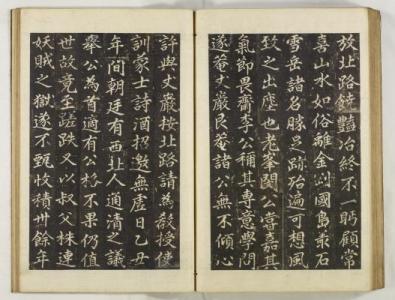 放北路饒豔冶終不一眄顧常
喜山水如俗離金剛國島叢石
雪岳諸名勝足跡殆遍可想風
致之出塵也老峯閔公嘗嘉其
氣節畏齋李公稱其專意學問
遂菴丈巖艮菴諸公無不傾心
許與丈巖按北路請為教授使
訓蒙士詩酒招邀無虛日乙丑
年間朝廷有西北人通清之議
舉公為首適有公格不果仍值
世故竟至蹉跌又以叔父株連
妖賊之獄遂不甄收積卅餘年